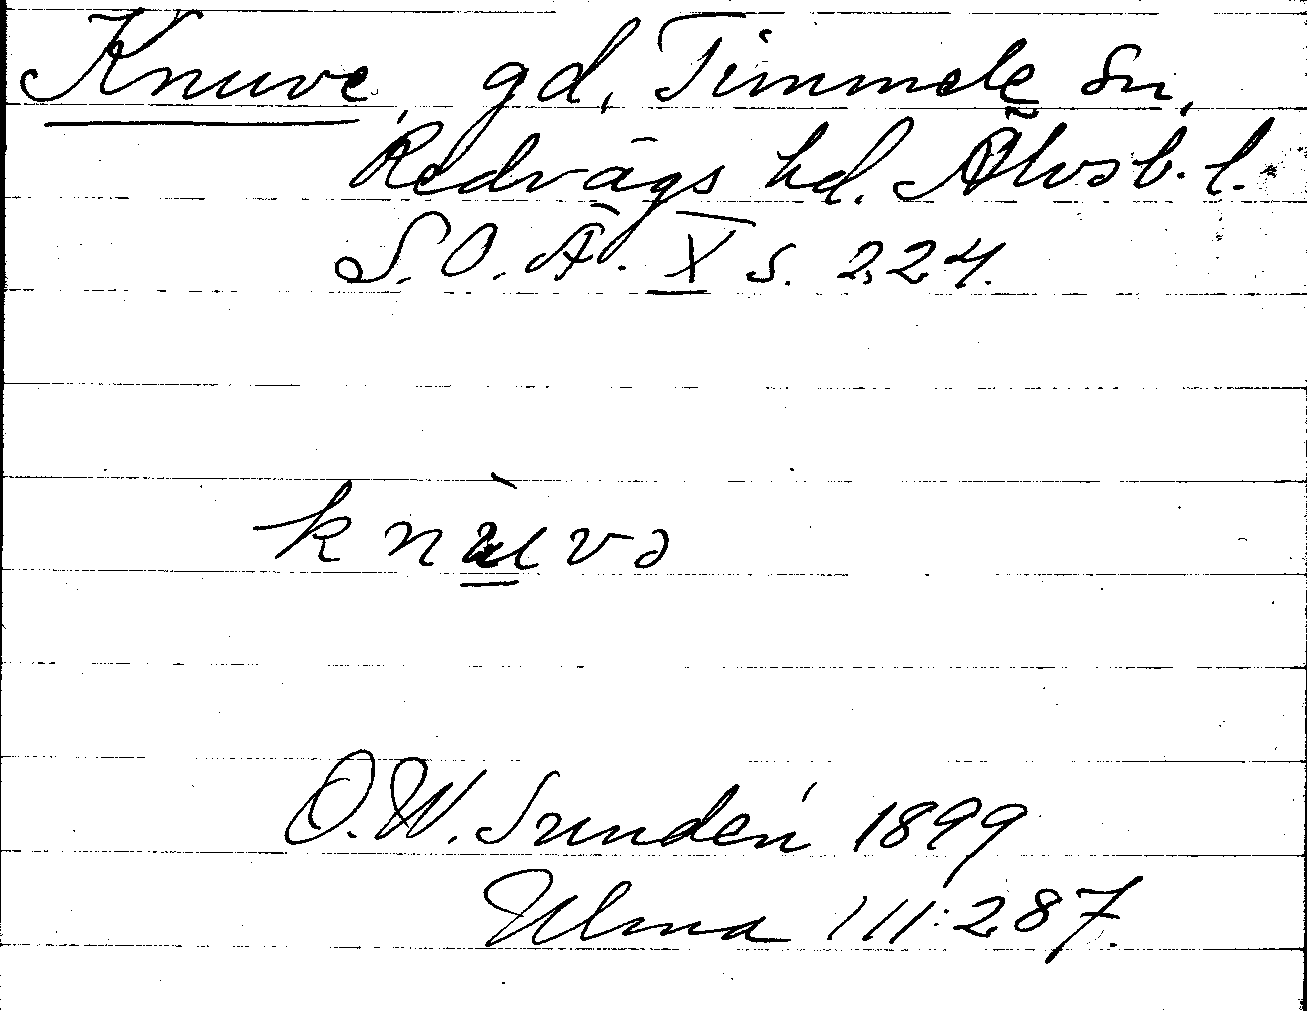 Knuve, gd, Timmele sn,
Redvägs hd. Älvsb. l.
S.O.Ä. X s. 224.
knùvə
D.W. Sundén 1899
Ulma 111:287.